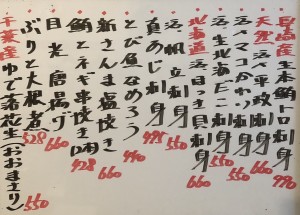 長崎産生本鮪トロ刺身 990
天然活〆平政刺身 660
活〆マコかれい刺身 550
活生北海だこ刺身 550
北海道活ほっき貝刺身 660
活帆立刺身 550
真あじ刺身 495
とび魚なめろう 440
新さんま塩焼き 660
鮪とネギ串焼き 428
目光唐揚げ 660
ぶりと大根煮 528
千葉産ゆで落花生(おおまさり) 550